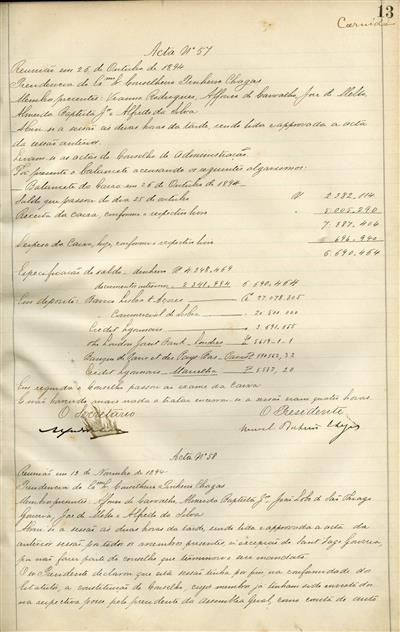 13
Carnide
Acta Nº 57
Reunião em 26 de Outubro de 1894
Presidencia do Exmo Sr Conselheiro Pinheiro Chagas
Membros presentes: Rodrigues, Affonso de Carvalho, José de Mello,
Almeida Baptista Jor Alfredo da Silva
Abriu-se a sessão ás duas horas da tarde, sendo lida e approvada a acta
da sessão anterior.
Leram-se as actas do Conselho de Administração.
Foi presente o Balancete accusando os seguintes algarismos:
Balancete da Caixa em 26 de Outubro de 1894
Saldo que passou do dia 25 de outubro 2.382.114
Receita da caixa, conforme o respectivo livro 5.005.290
7.387.404
Despeza da Caixa, hoje, conforme o respectivo livro 696.940
6.690.464
Especificação do saldo dinheiro 4.348.469
documentos internos 2.341.994 6.690.464
Em deposito: Banco Lisboa & Açores 27.078.205
" Commercial de Lisboa 20.500.000
Credit Lyonnais 3.691.655
The London Joint Stock Londres £ 5619-1-1
Banque de Paris et des Pays Bas - Paris
Credit Lyonnais - Marselha
Em seguida o Conselho passou ao exame da caixa.
E não havendo mais nada a tratar encerrou-se a sessão eram quatro horas.
O Secretario O Presidente
Manuel Pinheiro Chagas
Acta Nº 58
Reunião em 13 de Novembro de 1894
Presidencia do Exmo Sr Conselheiro Pinheiro Chagas
Membros presentes: Affonso de Carvalho, Almeida Baptista Jor, João Lobo de San Thiago
Gouveia, José de Mello e Alfredo da Silva
Abriu-se a sessão ás duas horas da tarde, sendo lida e approvada a acta da
anterior sessão por todos os membros presentes á excepção do Gouveia,
por não fazer parte do conselho que terminou o seu mandato
O Sr Presidente declarou que esta sessão tinha por fim na conformidade dos
Estatutos, a constituição do Conselho, cujos membros já tinham sido investidos
na respectiva posse pelo presidente da Assemblea Geral, como consta do auto